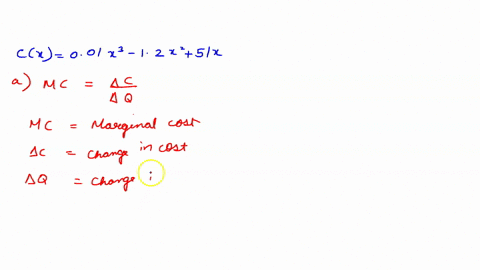 C(x) = 0.01 x³ - 1.2 x² + 51x
a) MC = ΔC / ΔQ
MC = Marginal cost
ΔC = Change in cost
ΔQ = Change i